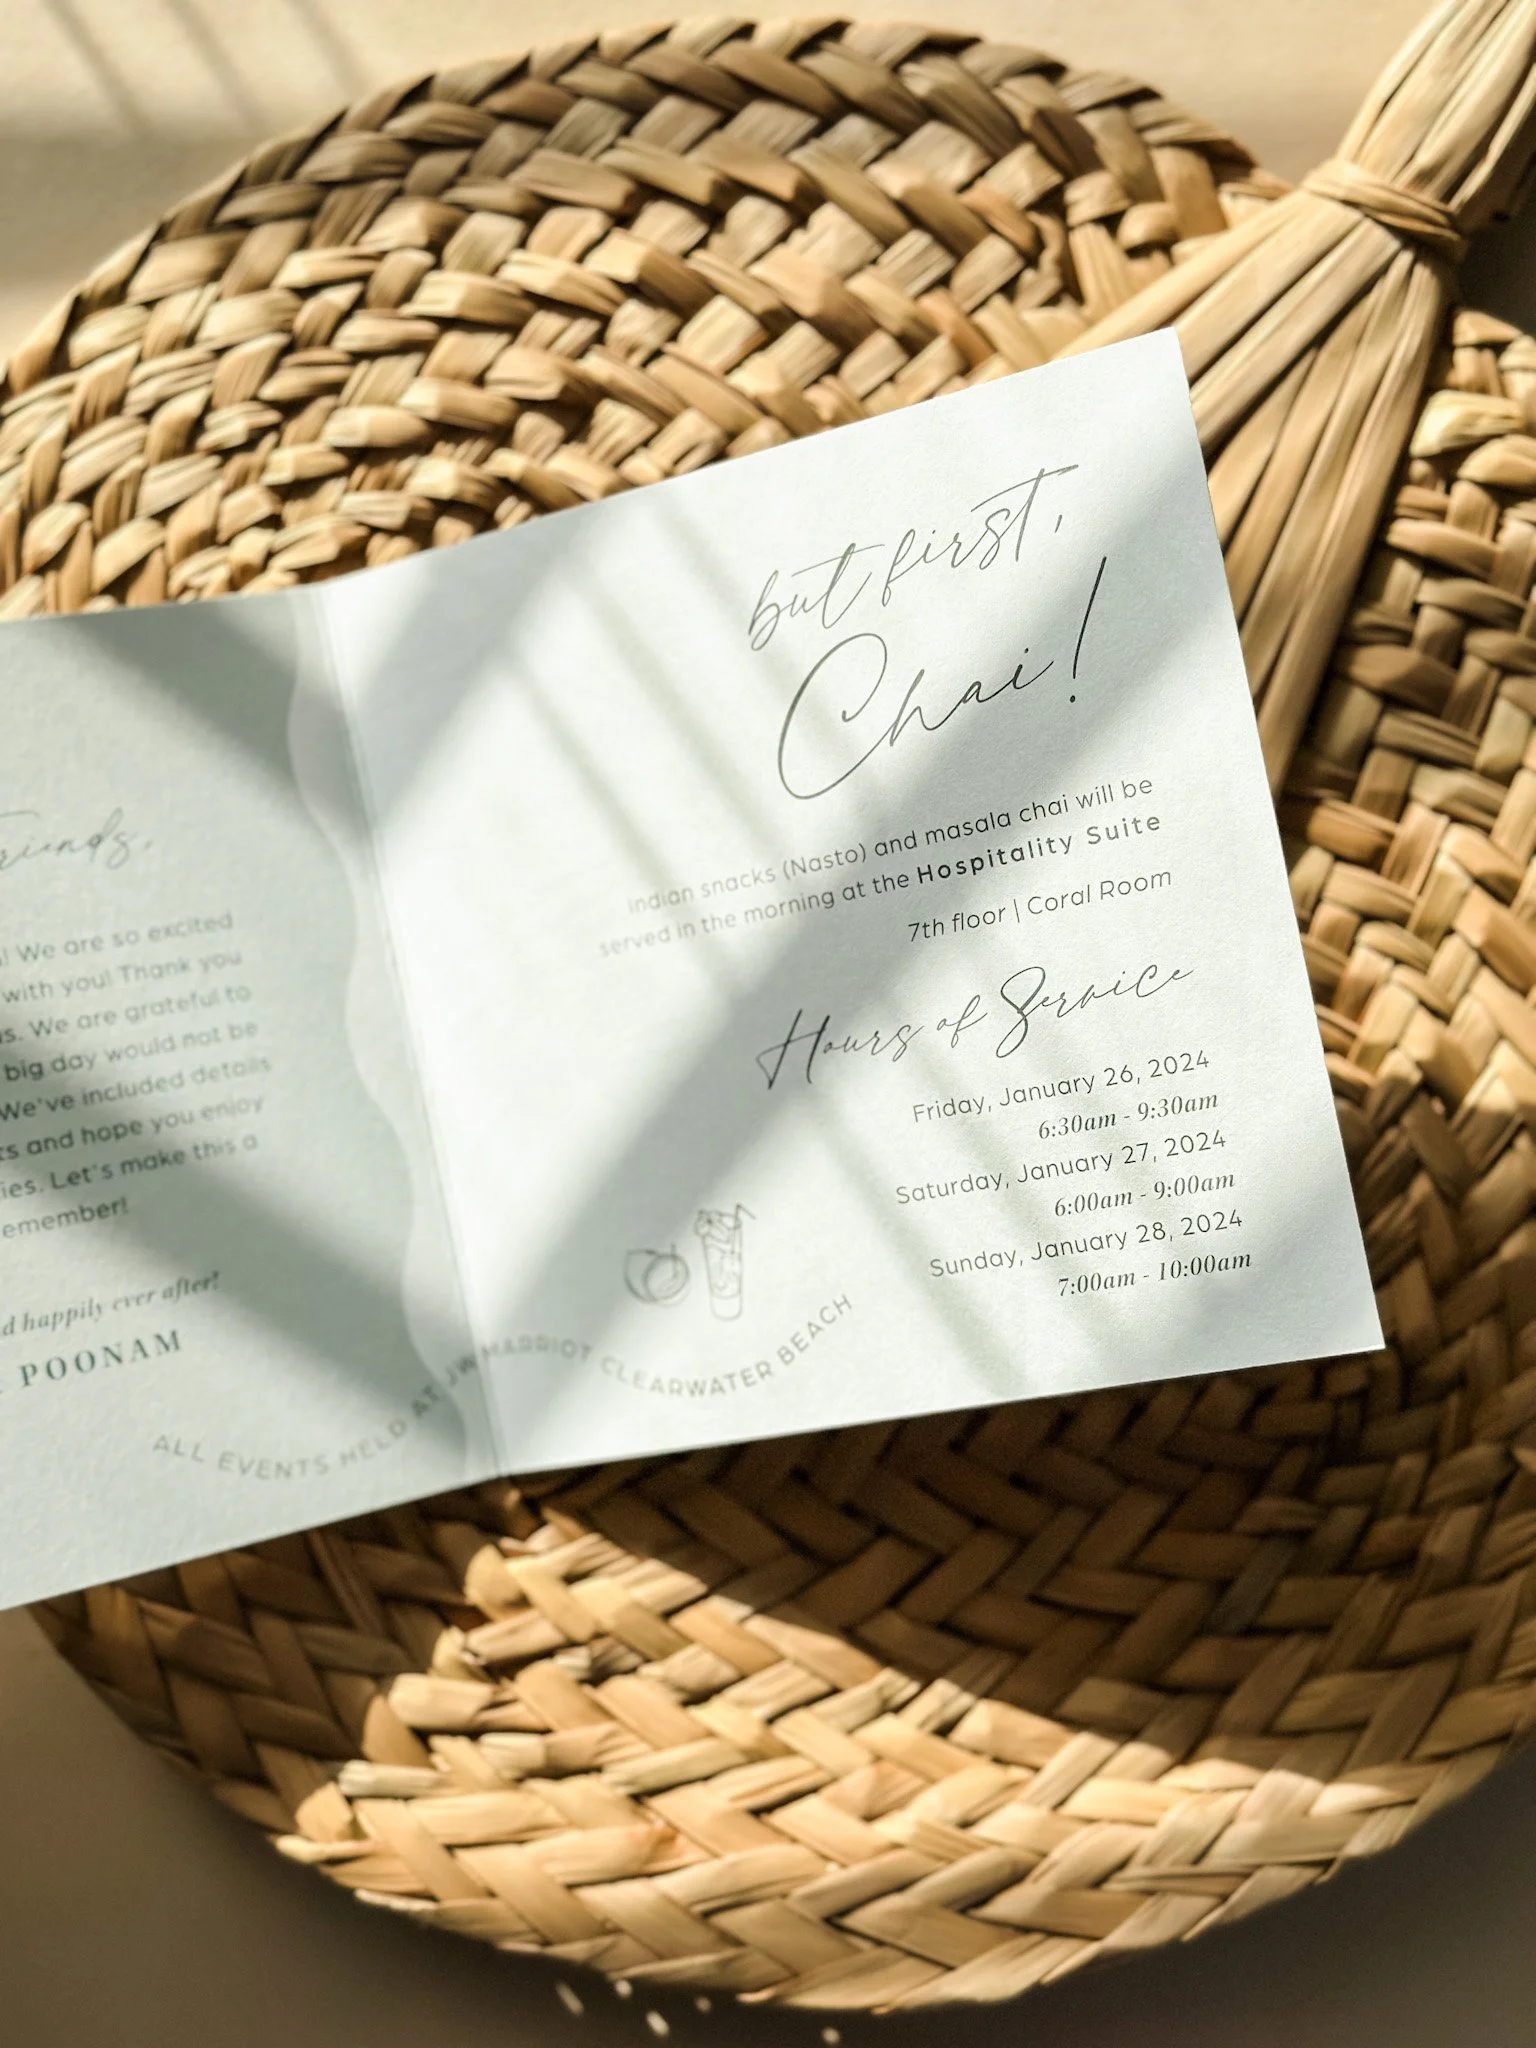 riends,
! We are so excited
with you! Thank you
s. We are grateful to
big day would not be
We've included details
ts and hope you enjoy
ies. Let's make this a
emember!
d happily ever after!
POONAM
but first,
Chai!
Indian snacks (Nasto) and masala chai will be
served in the morning at the Hospitality Suite
7th floor | Coral Room
Hours of Service
Friday, January 26, 2024
6:30am - 9:30am
Saturday, January 27, 2024
6:00am - 9:00am
Sunday, January 28, 2024
7:00am - 10:00am
ALL EVENTS HELD AT JW MARRIOT CLEARWATER BEACH